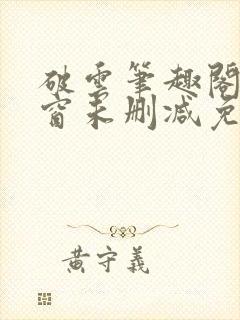 破雲筆趣閣
窗未刪減免
黃守義